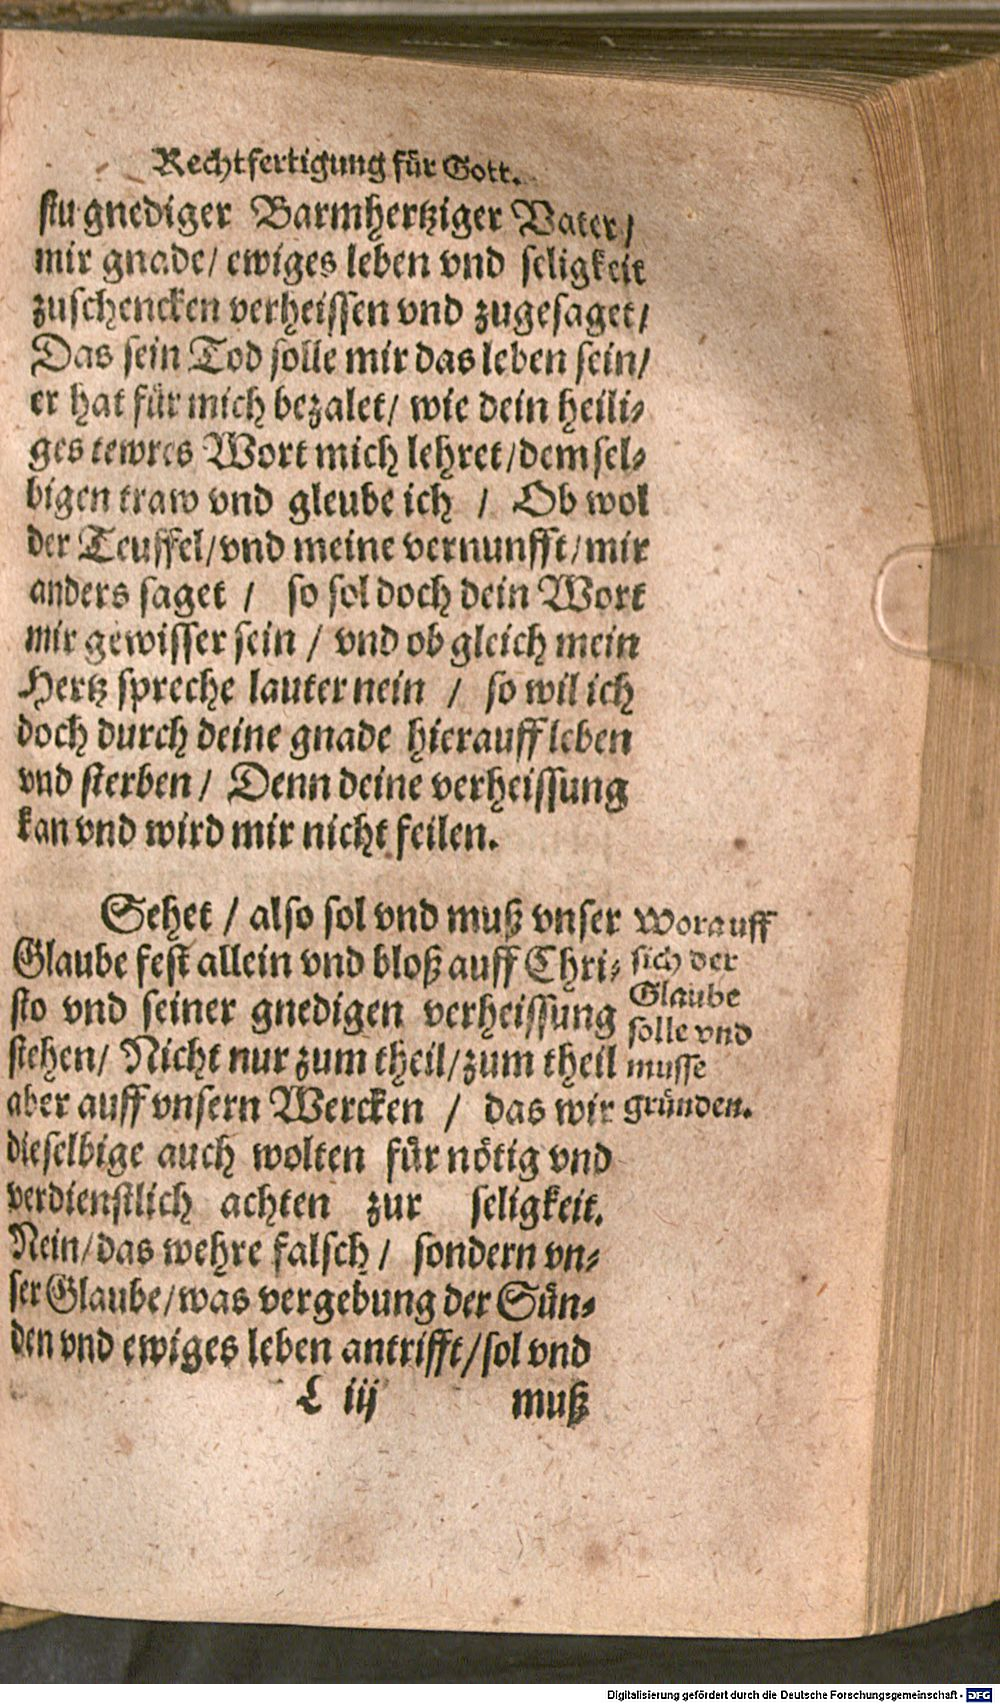 Rechtfertigung für Gott.
stu gnediger Barmhertziger Vater/
mir gnade/ ewiges leben vnd seligkeit
zuschencken verheissen vnd zugesaget/
Das sein Tod solle mir das leben sein/
er hat für mich bezalet/ wie dein heili-
ges tewres Wort mich lehret/demsel-
bigen traw vnd gleube ich / Ob wol
der Teuffel/vnd meine vernunfft/mir
anders saget / so sol doch dein Wort
mir gewisser sein / vnd ob gleich mein
Hertz spreche lauter nein / so wil ich
doch durch deine gnade hierauff leben
vnd sterben / Denn deine verheissung
kan vnd wird mir nicht feilen.
Sehet / also sol vnd muß vnser
Glaube fest allein vnd bloß auff Chri-
sto vnd seiner gnedigen verheissung
stehen/ Nicht nur zum theil/zum theil
aber auff vnsern Wercken / das wir
dieselbige auch wolten für nötig vnd
verdienstlich achten zur seligkeit.
Nein/das wehre falsch / sondern vn-
ser Glaube/was vergebung der Sün-
den vnd ewiges leben antrifft/sol vnd
L iij muß
Worauff
sich der
Glaube
solle vnd
musse
gründen.
Digitalisierung gefördert durch die Deutsche Forschungsgemeinschaft - DFG